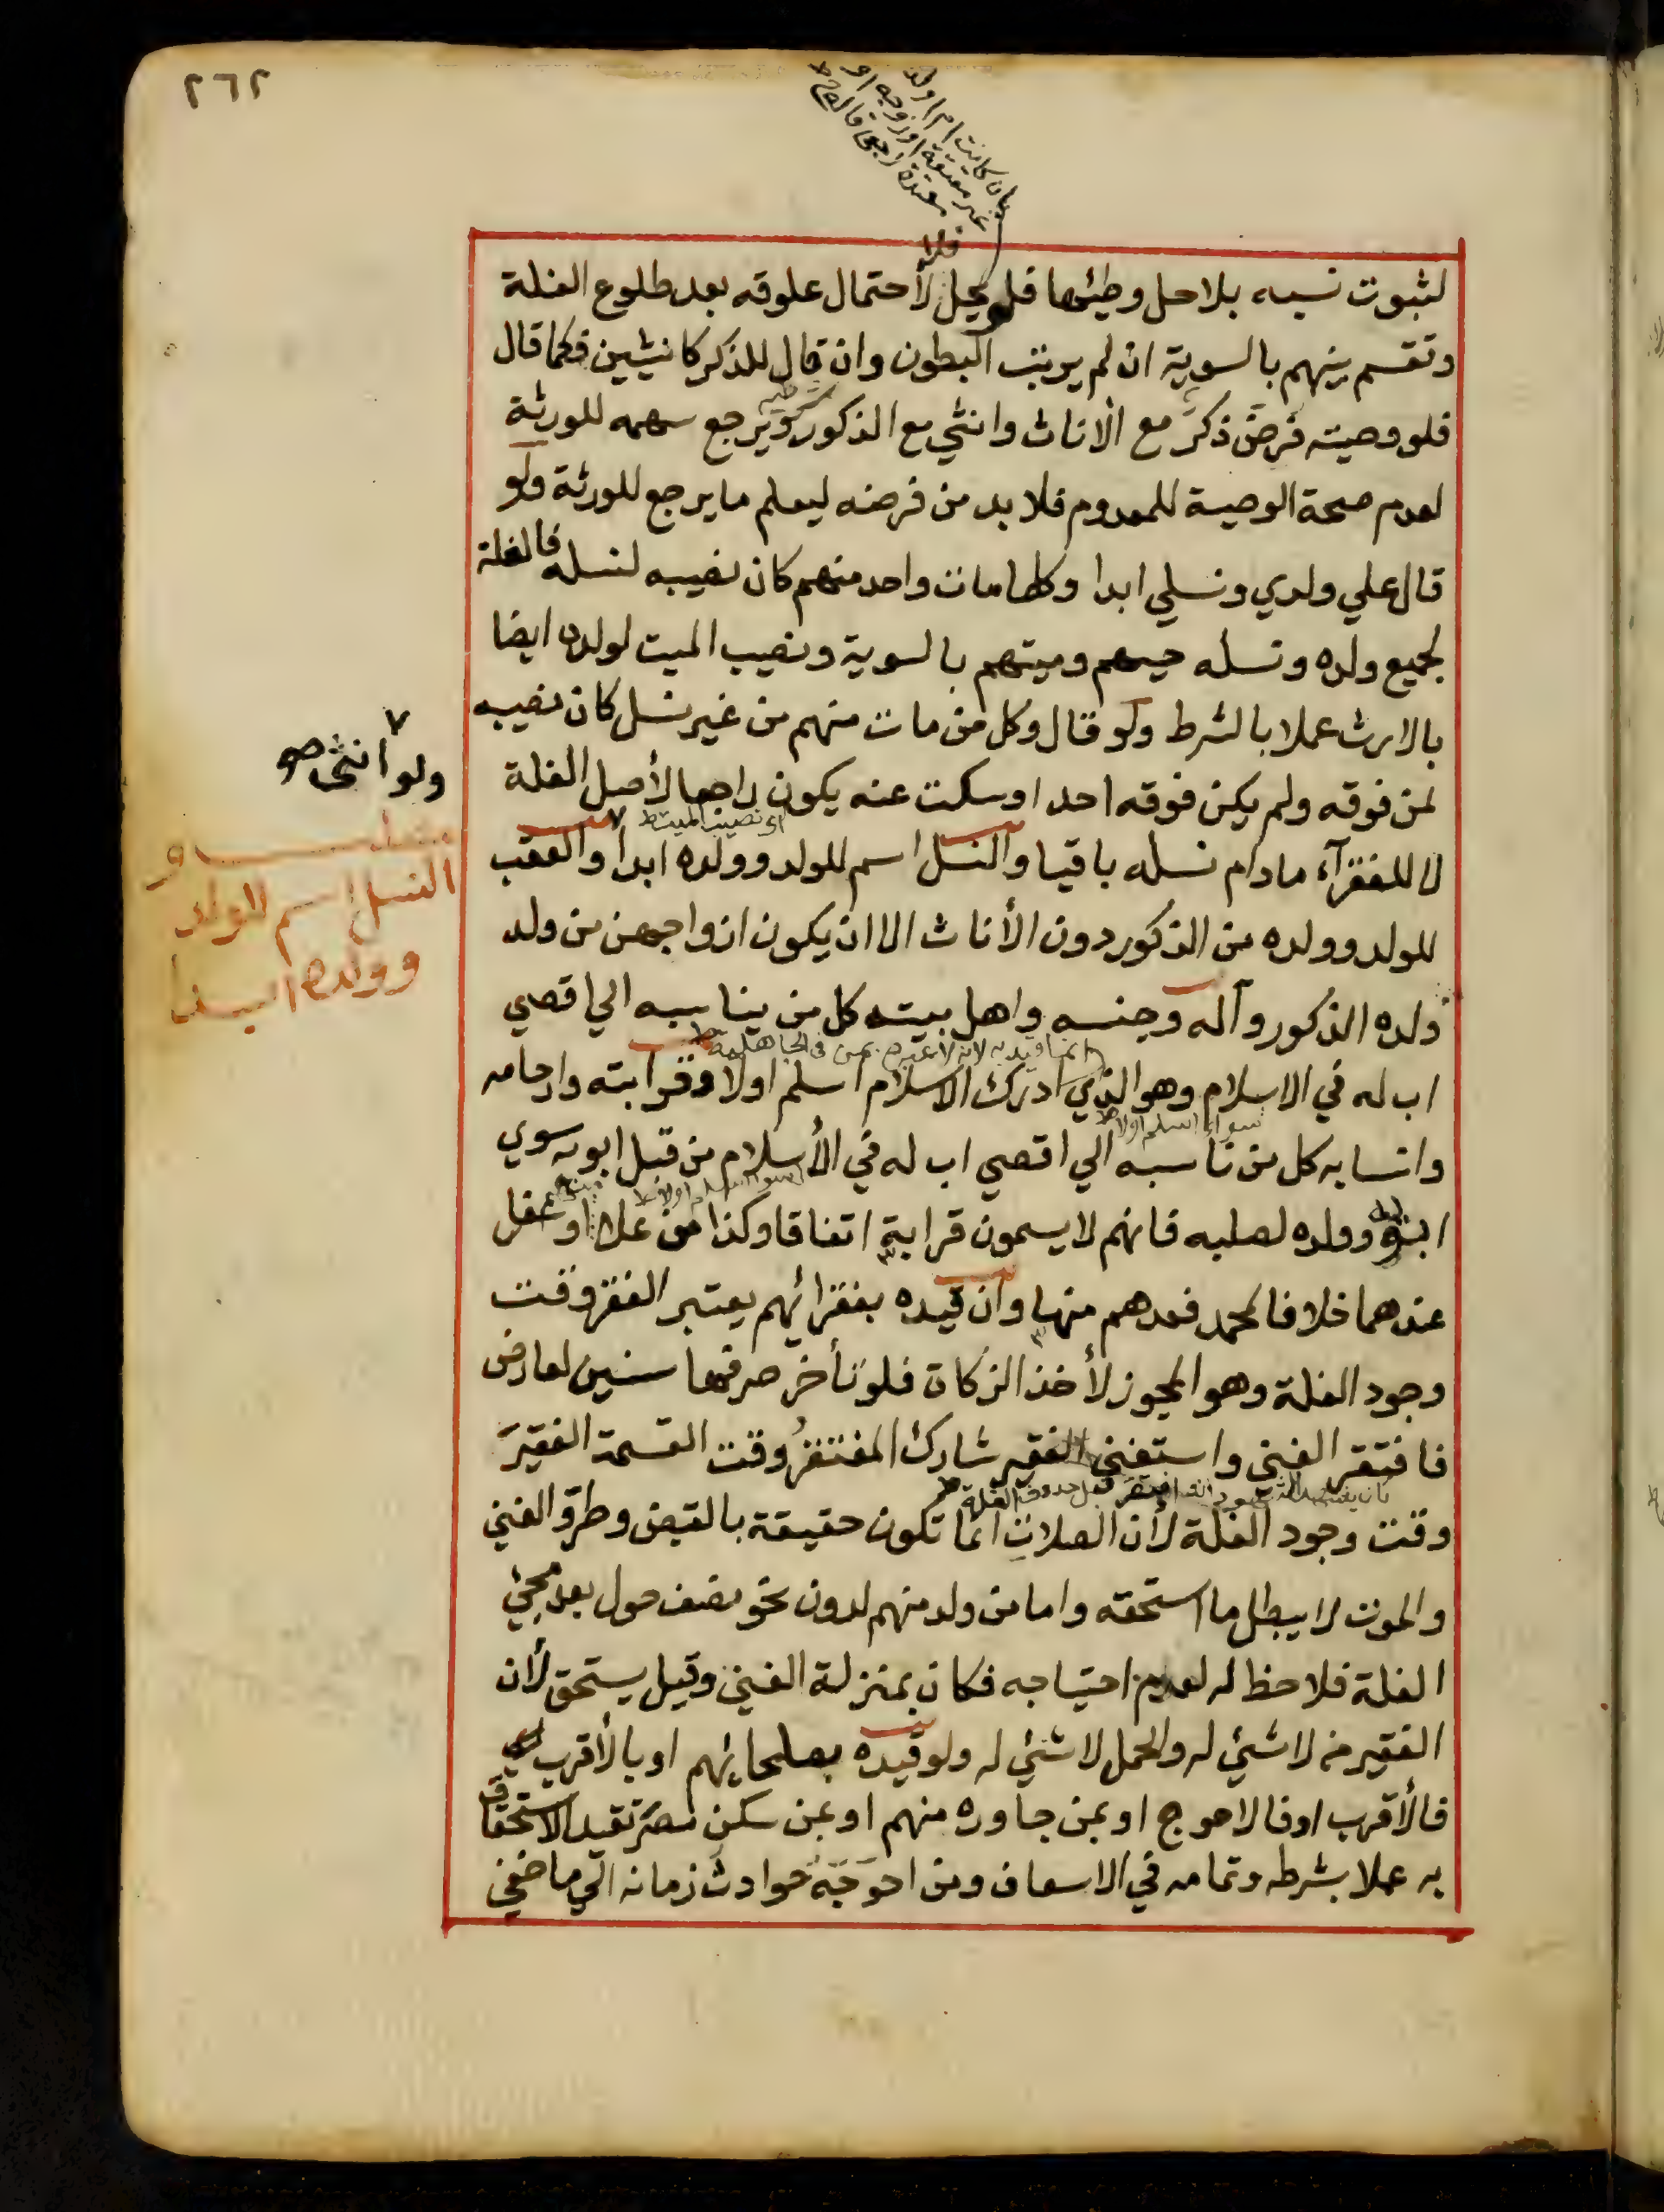 ٢٦٢
بان كانت ام اولد
غير معتقة او زوجة او
معتدة رجعي قاله ح ط
لثبوت نسبه بلا حل وطئها فلو يحل فلا لأحتمال علوقه بعد طلوع الغلة
وتقسم بينهم بالسوية ان لم يرتب البطون وان قال للذكر كانثيين فكما قال
فلو وصيته فرض ذكر مع الاناث وانثى مع الذكور ويرجع سهمه للورثة
لعدم صحة الوصية للمعدوم فلا بد من فرضه ليعلم ما يرجع للورثة ولو
قال علي ولدي ونسلي ابدا وكلما مات واحد منهم كان نصيبه لنسله فالغلة
لجميع ولده ونسله حيهم وميتهم بالسوية ونصيب الميت لولده ايضا
بالارث عملا بالشرط ولو قال وكل من مات منهم من غير نسل كان نصيبه
لمن فوقه ولم يكن فوقه احد او سكت عنه يكون راجعا لأصل الغلة
اي نصيب الميت ط
لا للفقرآء مادام نسله باقيا والنسل اسم للولد وولده ابدا والعقب
ولو انثى صح
النسل اسم للولد
وولده ابدا
للولد وولده من الذكور دون الأناث الا ان يكون ازواجهن من ولد
ولده الذكور وآله وجنسه واهل بيته كل من يناسبه الي اقصي
انما قيد به لانه لا عبرة بمن في الجاهلية ط
اب له في الاسلام وهو الذي ادرك الاسلام اسلم اولا وقرابته وارحامه
سواء اسلم اولا ط
وانسابه كل من ناسبه الي اقصي اب له في الأسلام من قبل ابويه سوي
ابويه وولده لصلبه فانهم لا يسمون قرابة اتفاقا وكذا من علا او سفل
عندهما خلافا لمحمد فعدهم منها وان قيده بفقرائهم يعتبر الفقر وقت
وجود الغلة وهو المجوز لأخذ الزكاة فلو تأخر صرفها سنين لعارض
فافتقر الغني واستغني الفقير شارك المفتقر وقت القسمة الفقير
وقت وجود الغلة لأن الصلات انما تكون حقيقة بالقبض وطرو الغني
والموت لا يبطل ما استحقه واما من ولد منهم لدون نحو نصف حول بعد مجيئ
الغلة فلا حظ له لعدم احتياجه فكان بمنزلة الغني وقيل يستحق لأن
الفقير من لا شيئ له والحمل لا شيئ له ولو قيده بصلحائهم او بالأقرب
فالأقرب او فالاحوج او بمن جاوره منهم او بمن سكن مصر تقيد الاستحقاق
به عملا بشرطه وتمامه في الاسعاف ومن احوجته حوادث زمانه الي ما خفي